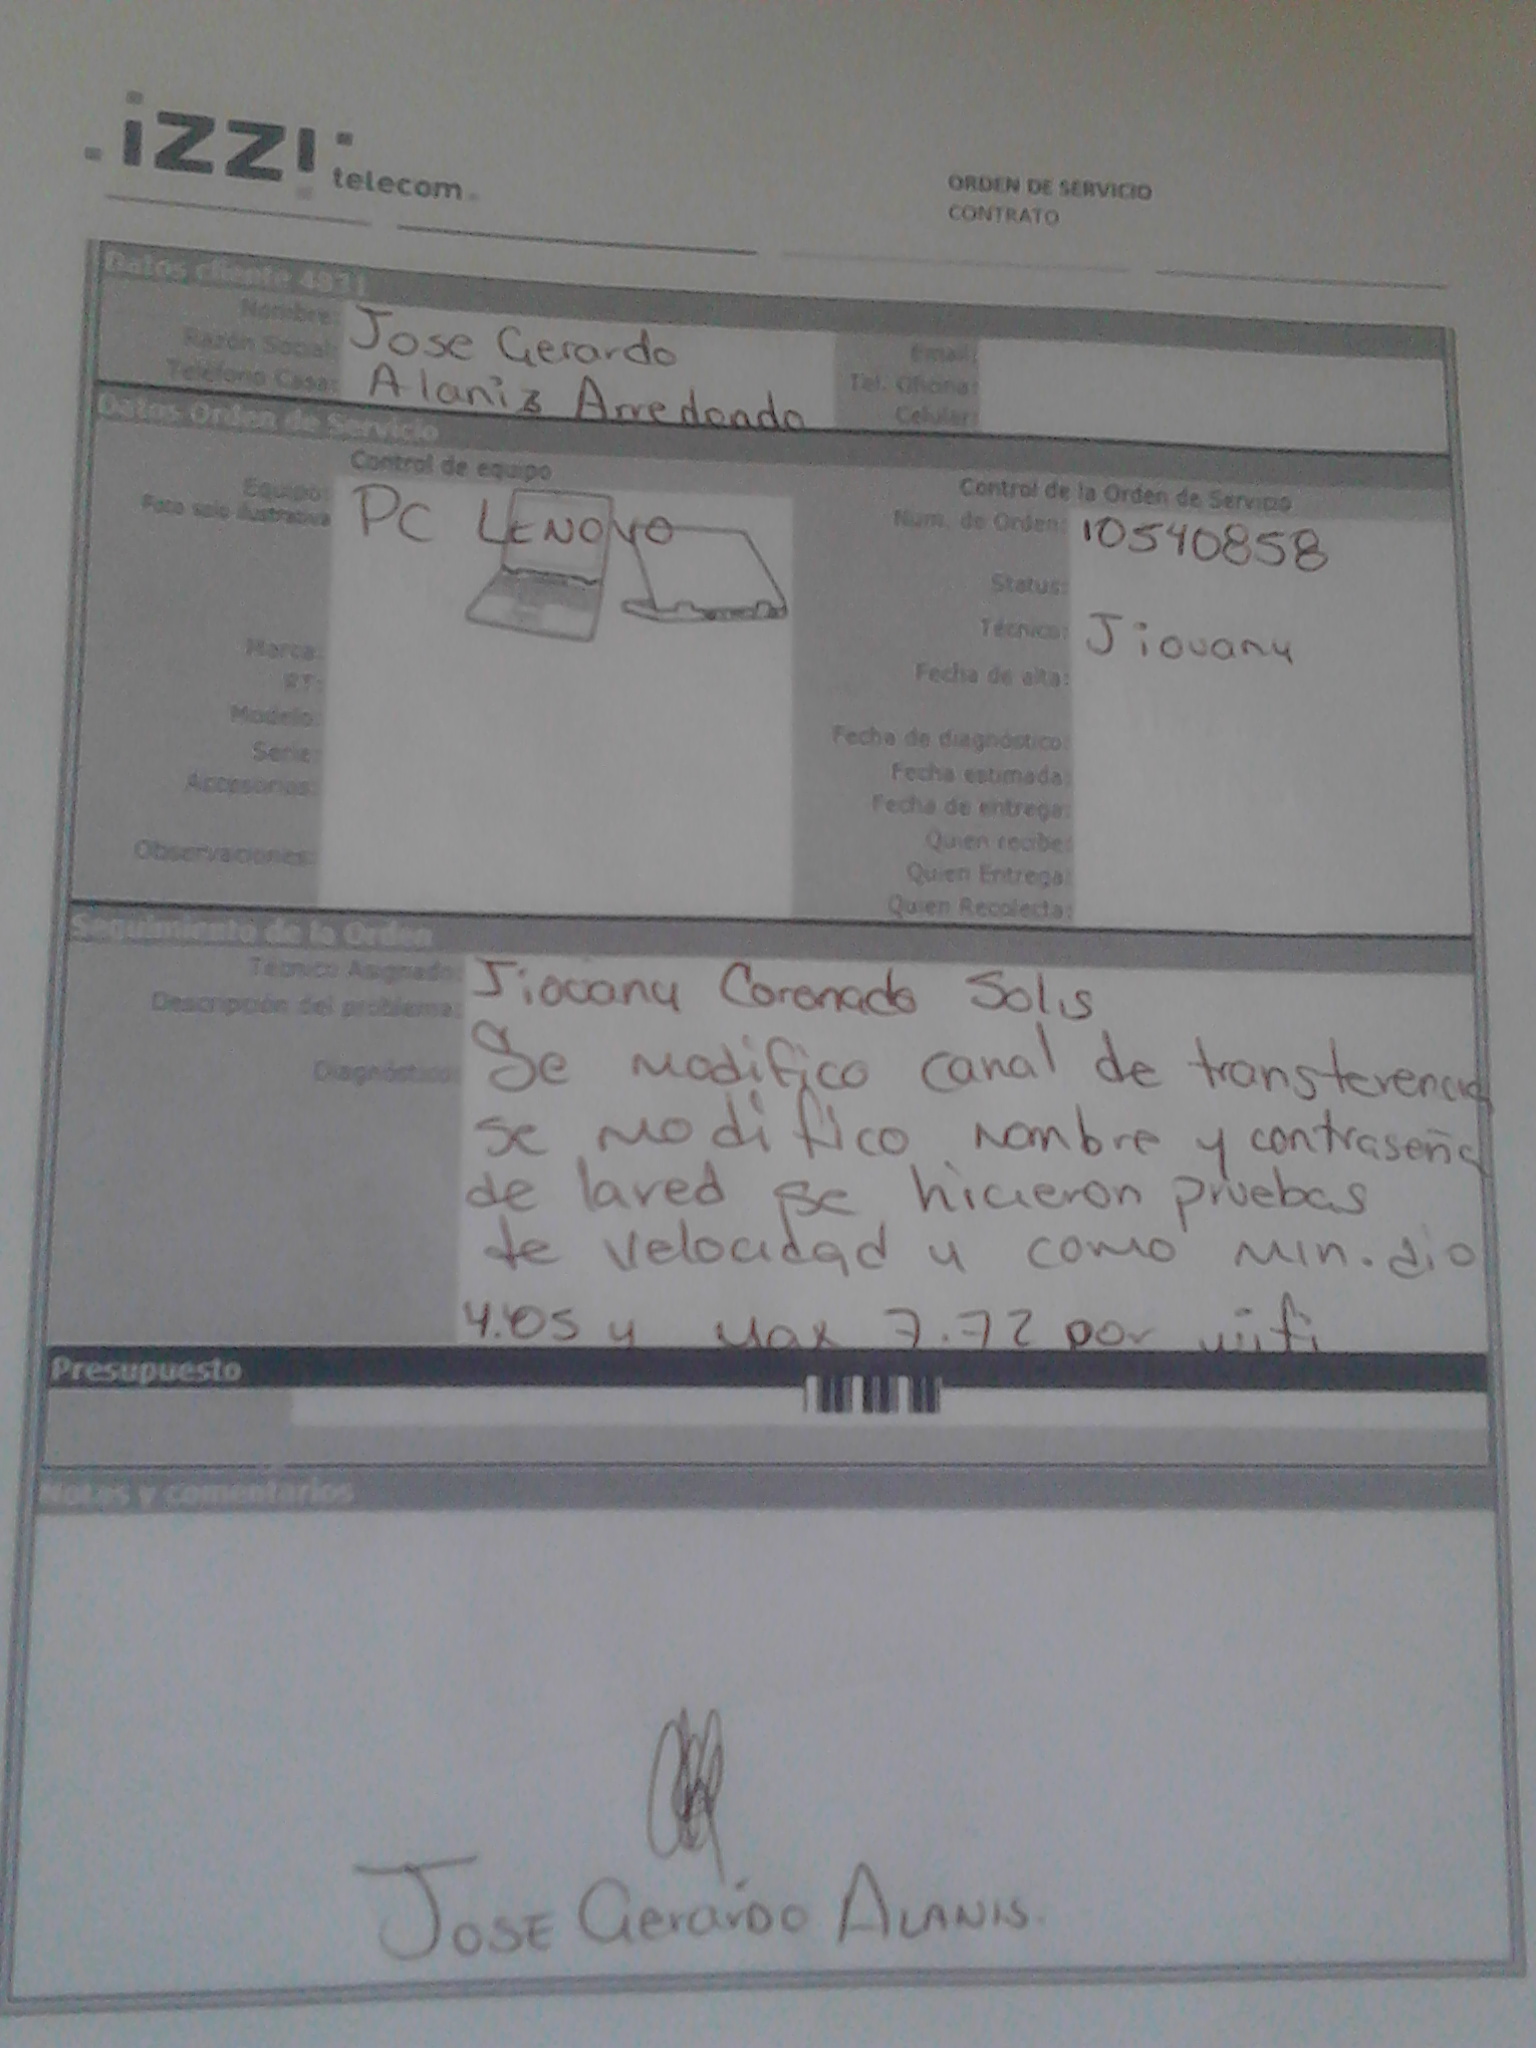 izzi telecom
ORDEN DE SERVICIO
CONTRATO
Datos cliente 4831
Nombre: Jose Gerardo
Razón Social:
Teléfono Casa: Alaniz Arredondo
Email:
Tel. Oficina:
Celular:
Datos Orden de Servicio
Control de equipo
Equipo: PC LENOVO
Foto solo ilustrativa
Marca:
RT:
Modelo:
Serie:
Accesorios:
Observaciones:
Control de la Orden de Servicio
Num. de Orden: 10540858
Status:
Técnico: Jiovany
Fecha de alta:
Fecha de diagnóstico:
Fecha estimada:
Fecha de entrega:
Quien recibe:
Quien Entrega:
Quien Recolecta:
Seguimiento de la Orden
Técnico Asignado: Jiovany Coronado Solis
Descripción del problema:
Diagnóstico: Se modifico canal de transferencia
se modifico nombre y contraseña
de la red se hicieron pruebas
de velocidad y como min. dio
4.05 y max 7.72 por wifi
Presupuesto
Notas y comentarios
JOSE Gerardo ALANIS.